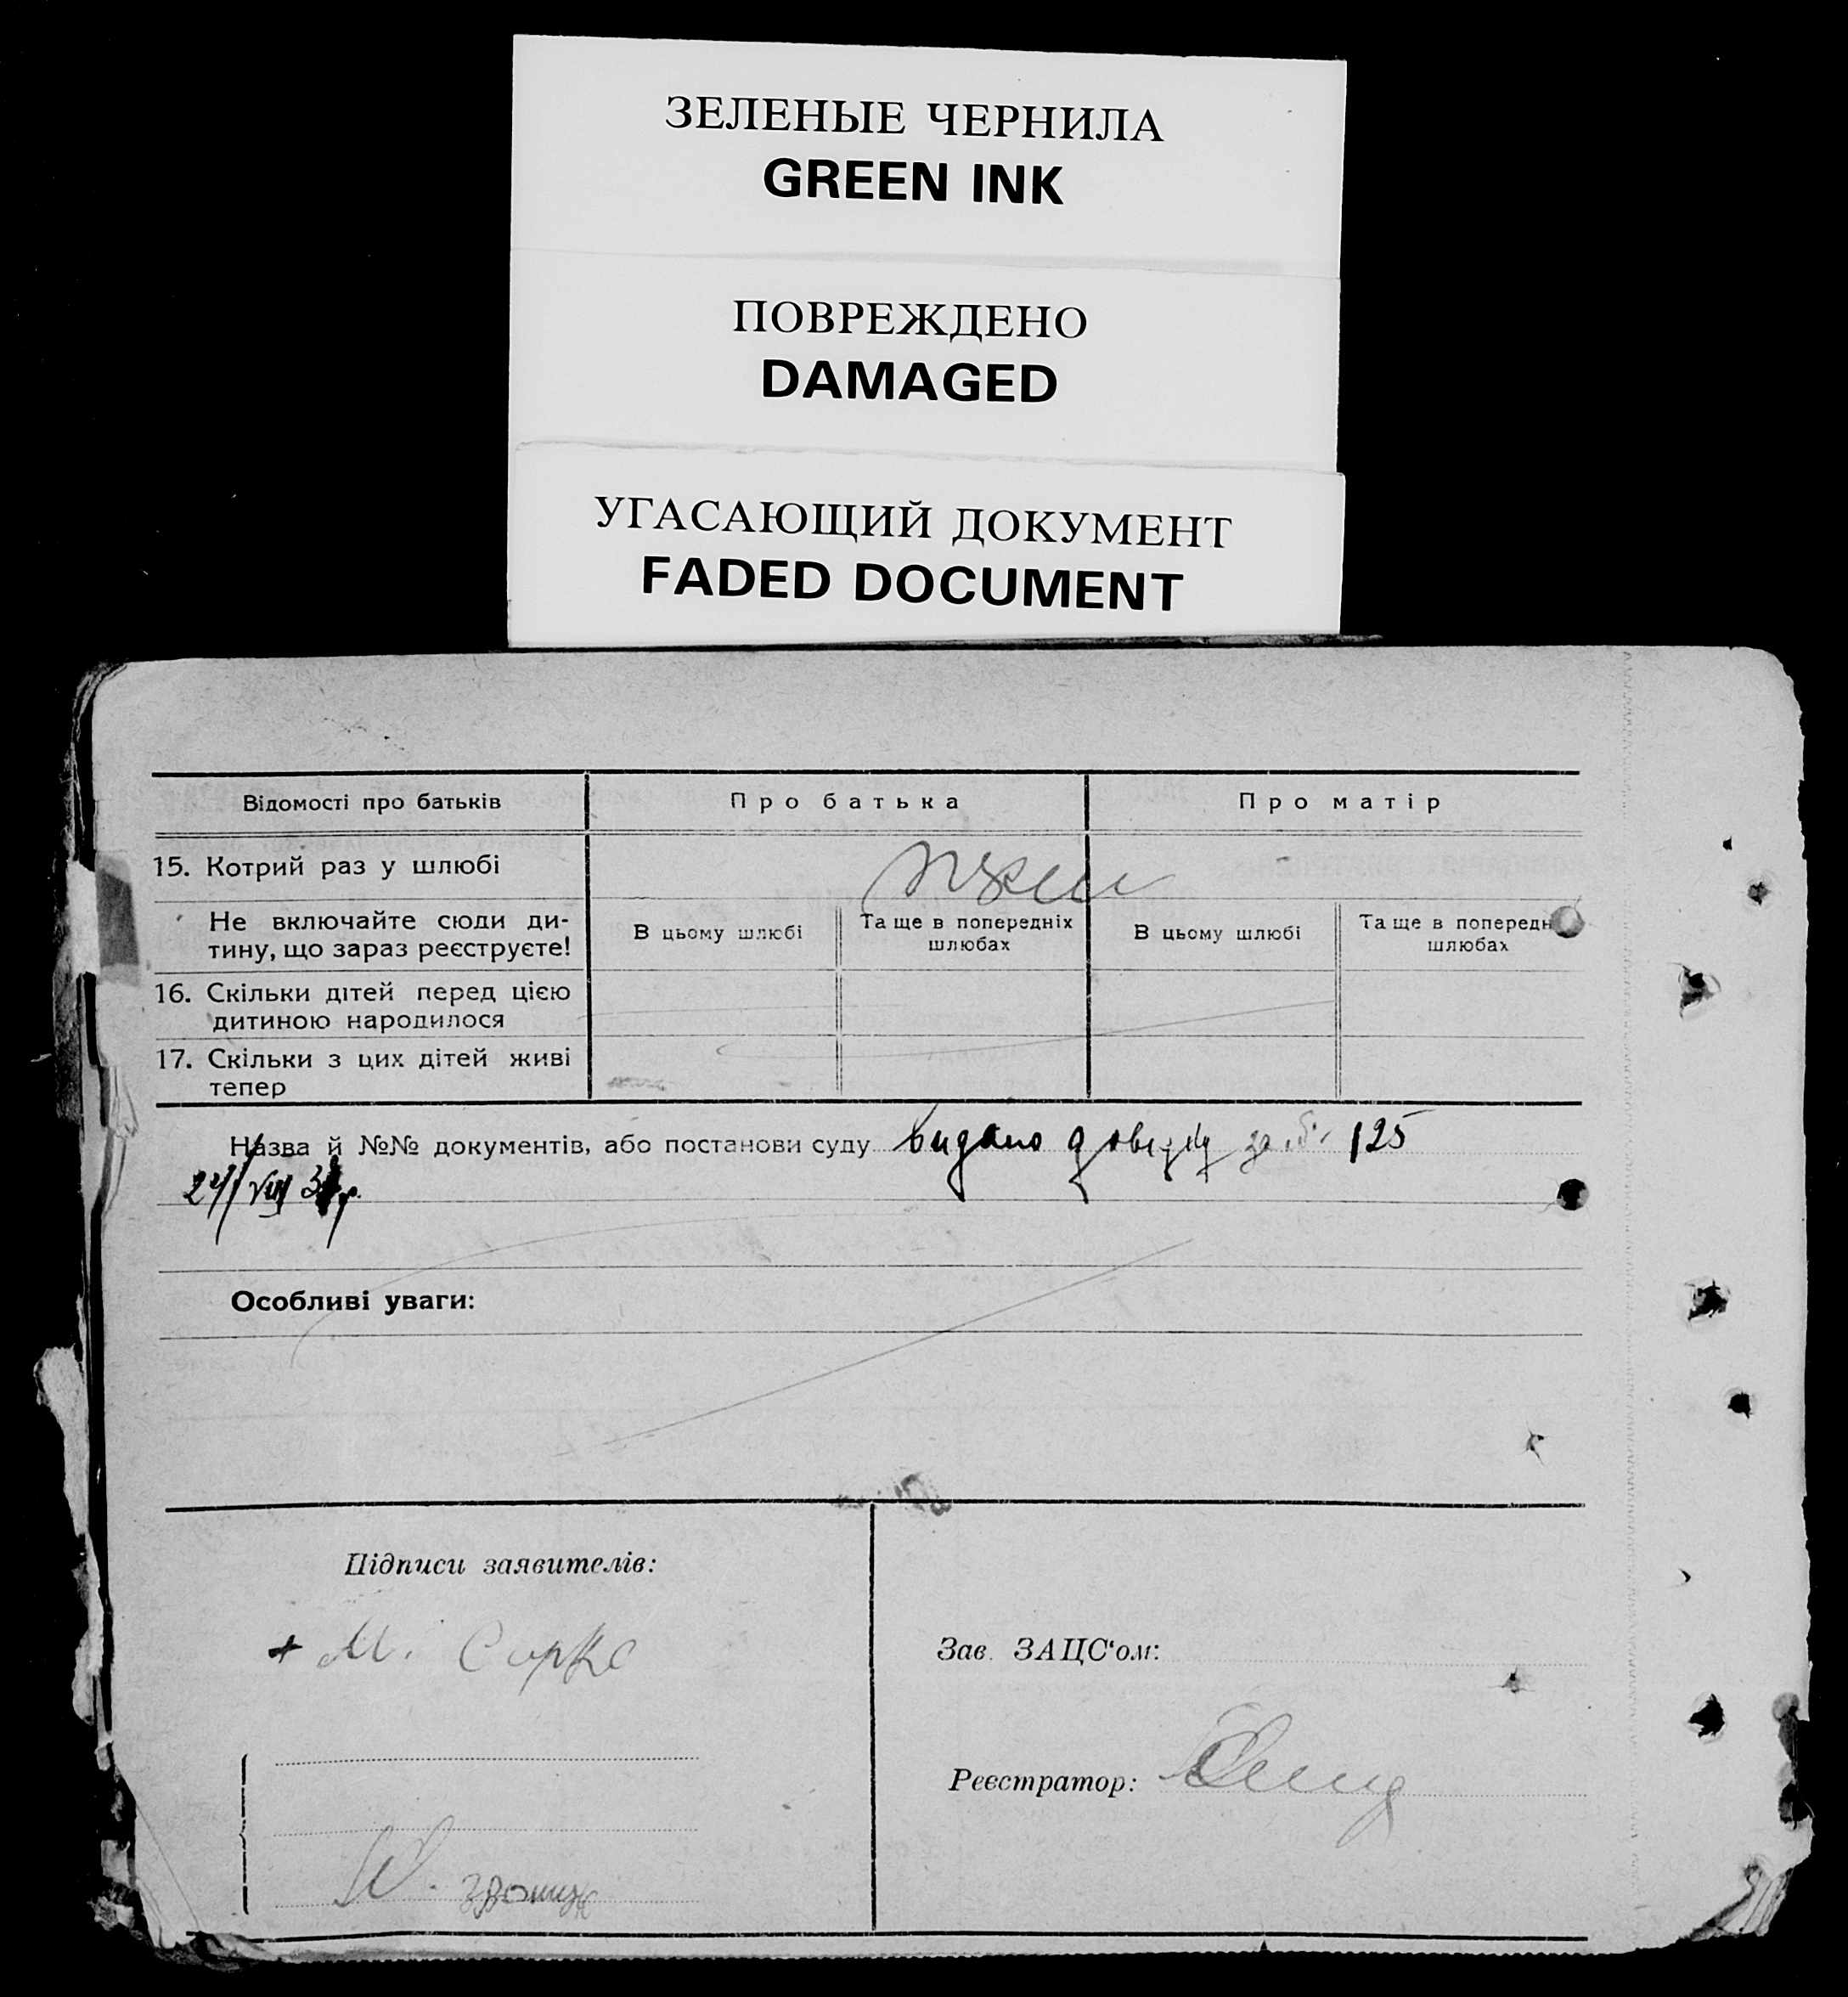 ЗЕЛЕНЫЕ ЧЕРНИЛА
GREEN INK
ПОВРЕЖДЕНО
DAMAGED
УГАСАЮЩИЙ ДОКУМЕНТ
FADED DOCUMENT
Відомості про батьків Про батька Про матір
15. Котрий раз у шлюбі
Не включайте сюди ди-
тину, що зараз реєструєте!
В цьому шлюбі
Та ще в попередніх
шлюбах
В цьому шлюбі
Та ще в попередн
шлюбах
16. Скільки дітей перед цією
дитиною народилося
17. Скільки з цих дітей живі
тепер
Назва й №№ документів, або постанови суду видано довідку за 125
VIII
Особливі уваги:
Підписи заявителів:
+ М. Сирко
Зав. ЗАЦС‘ом:
Реєстратор: